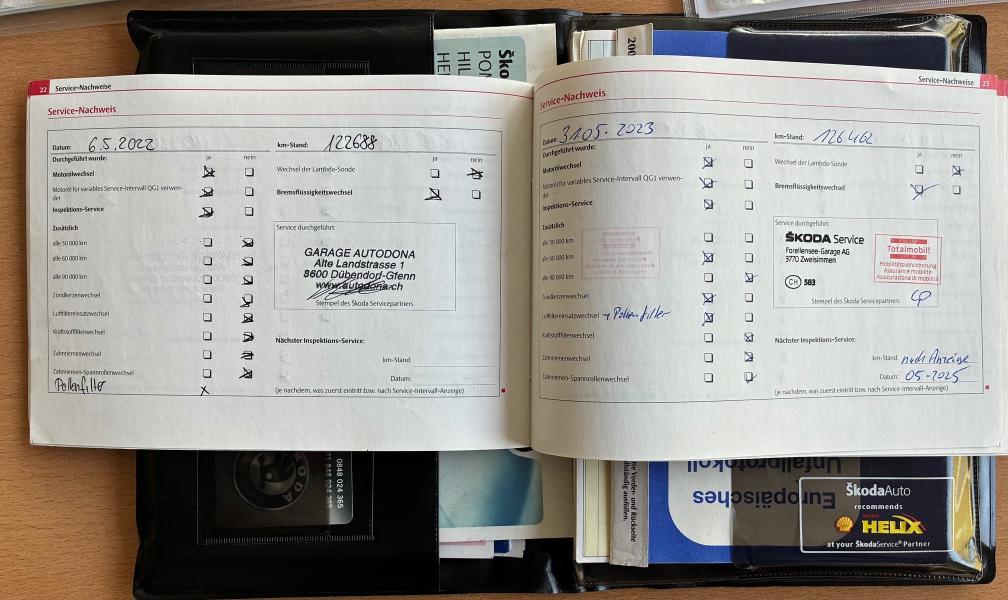 Ško
PON
HIL
HE
200
22 Service-Nachweise
Service-Nachweis
Datum: 6.5.2022
km-Stand: 122688
Durchgeführt wurde:
ja nein
ja nein
Motorölwechsel
Wechsel der Lambda-Sonde
Motoröl für variables Service-Intervall QG1 verwen-
det
Bremsflüssigkeitswechsel
Inspektions-Service
Zusätzlich
Service durchgeführt
alle 30 000 km
alle 60 000 km
alle 90 000 km
Zündkerzenwechsel
Luftfiltereinsatzwechsel
Kraftstofffilterwechsel
Zahnriemenwechsel
Zahnriemen-Spannrollenwechsel
Pollenfilter x
GARAGE AUTODONA
Alte Landstrasse 1
8600 Dübendorf-Gfenn
www.autodona.ch
Stempel des Škoda Servicepartners
Nächster Inspektions-Service:
km-Stand:
Datum:
(je nachdem, was zuerst eintritt bzw. nach Service-Intervall-Anzeige)
Service-Nachweise 23
Service-Nachweis
Datum: 31.05.2023
km-Stand: 126462
Durchgeführt wurde:
ja nein
ja nein
Motorölwechsel
Wechsel der Lambda-Sonde
Motoröl für variables Service-Intervall QG1 verwen-
det
Bremsflüssigkeitswechsel
Inspektions-Service
Zusätzlich
Service durchgeführt
alle 30 000 km
alle 60 000 km
alle 90 000 km
Zündkerzenwechsel
Luftfiltereinsatzwechsel → Pollenfilter
Kraftstofffilterwechsel
Zahnriemenwechsel
Zahnriemen-Spannrollenwechsel
ŠKODA Service
Forellensee-Garage AG
3770 Zweisimmen
CH 583
Totalmobil!
Mobilitätsversicherung
Assurance mobilité
Assicurazione di mobilità
Stempel des Škoda Servicepartners
Nächster Inspektions-Service:
km-Stand: nach Anzeige
Datum: 05-2025
(je nachdem, was zuerst eintritt bzw. nach Service-Intervall-Anzeige)
SKODA
0848 024 365
te Vorder- und Rückseite
llständig ausfüllen.
Europäisches
Unfallprotokoll
ŠkodaAuto
recommends
Shell
HELIX
at your ŠkodaService® Partner